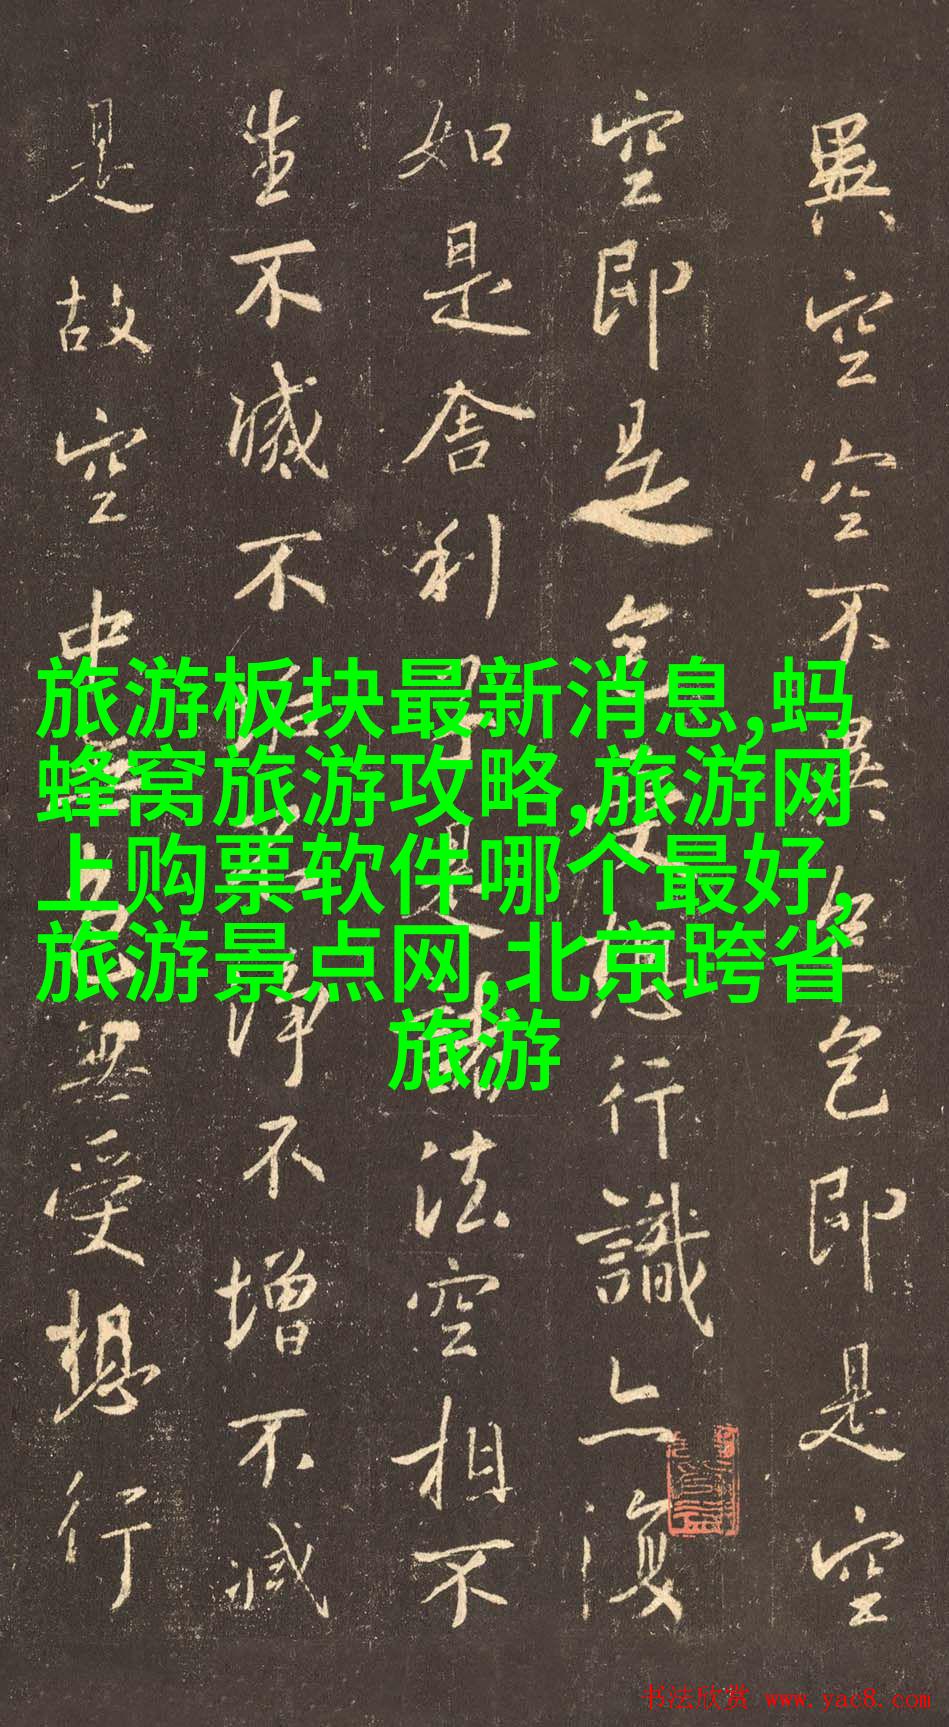 異空空不異色色即是空
空即是色受想行識亦復
如是舍利子是諸法空相不
生不滅不垢不淨不增不減
是故空中無色無受想行
旅游板块最新消息,蚂
蜂窝旅游攻略,旅游网
上购票软件哪个最好,
旅游景点网,北京跨省
旅游
书法欣赏 www.yac8.com